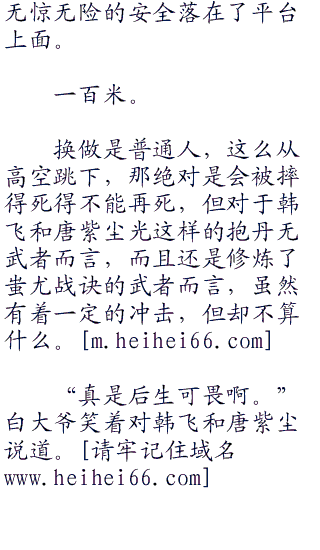 无惊无险的安全落在了平台
上面。
一百米。
换做是普通人，这么从
高空跳下，那绝对是会被摔
得死得不能再死，但对于韩
飞和唐紫尘光这样的抱丹无
武者而言，而且还是修炼了
蚩尤战诀的武者而言，虽然
有着一定的冲击，但却不算
什么。[m.heihei66.com]
“真是后生可畏啊。”
白大爷笑着对韩飞和唐紫尘
说道。[请牢记住域名
www.heihei66.com]